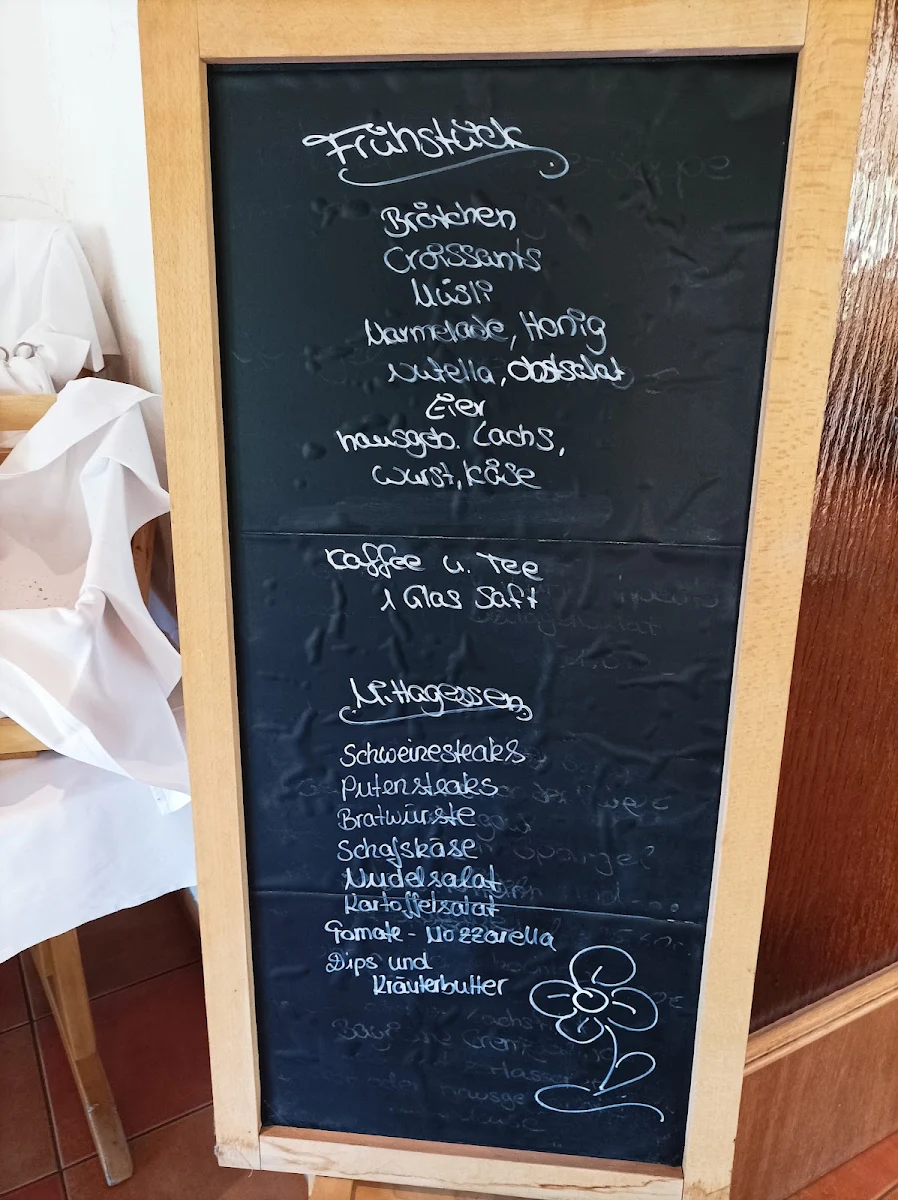 Frühstück
Brötchen
Croissants
Müsli
Marmelade, Honig
Nutella, Obstsalat
Eier
hausgeb. Lachs,
Wurst, Käse
Kaffee u. Tee
1 Glas Saft
Mittagessen
Schweinesteaks
Putensteaks
Bratwürste
Schafskäse
Nudelsalat
Kartoffelsalat
Tomate - Mozzarella
Dips und
Kräuterbutter